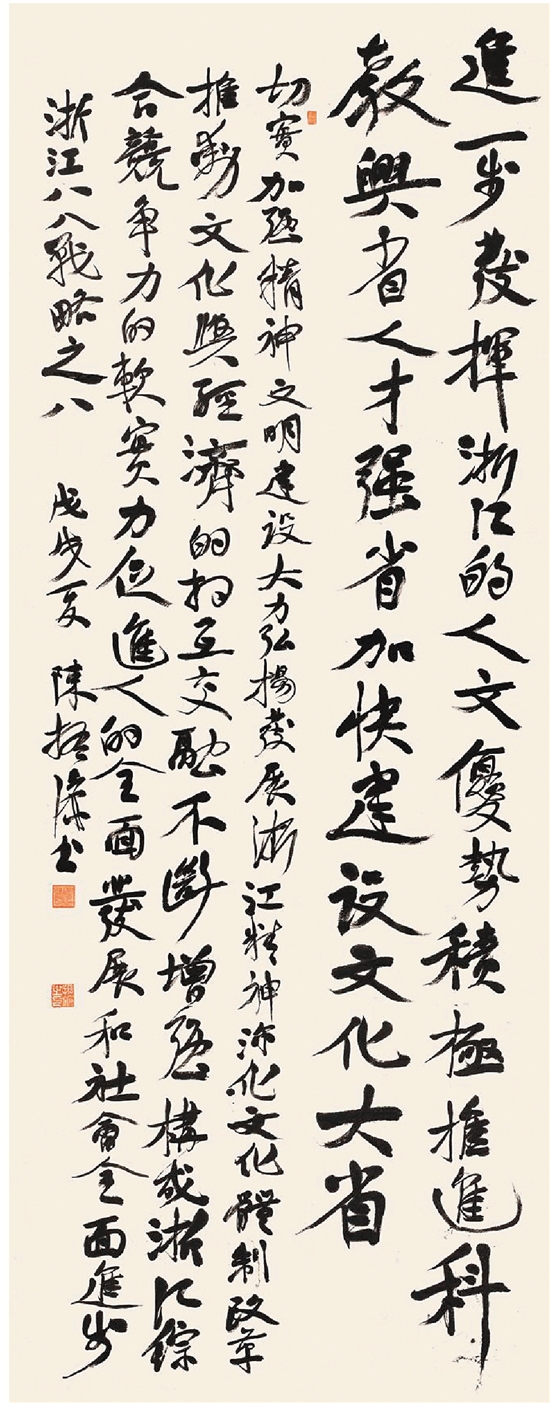 進一步發揮浙江的人文優勢積極推進科
教興省人才强省加快建设文化大省
切實加强精神文明建设大力弘揚發展浙江精神深化文化體制改革
推動文化與經濟的相互交融不斷增强構成浙江綜
合競争力的軟實力促進人的全面發展和社會全面進步
浙江八八戰略之八 戊戌夏 陳振濂书